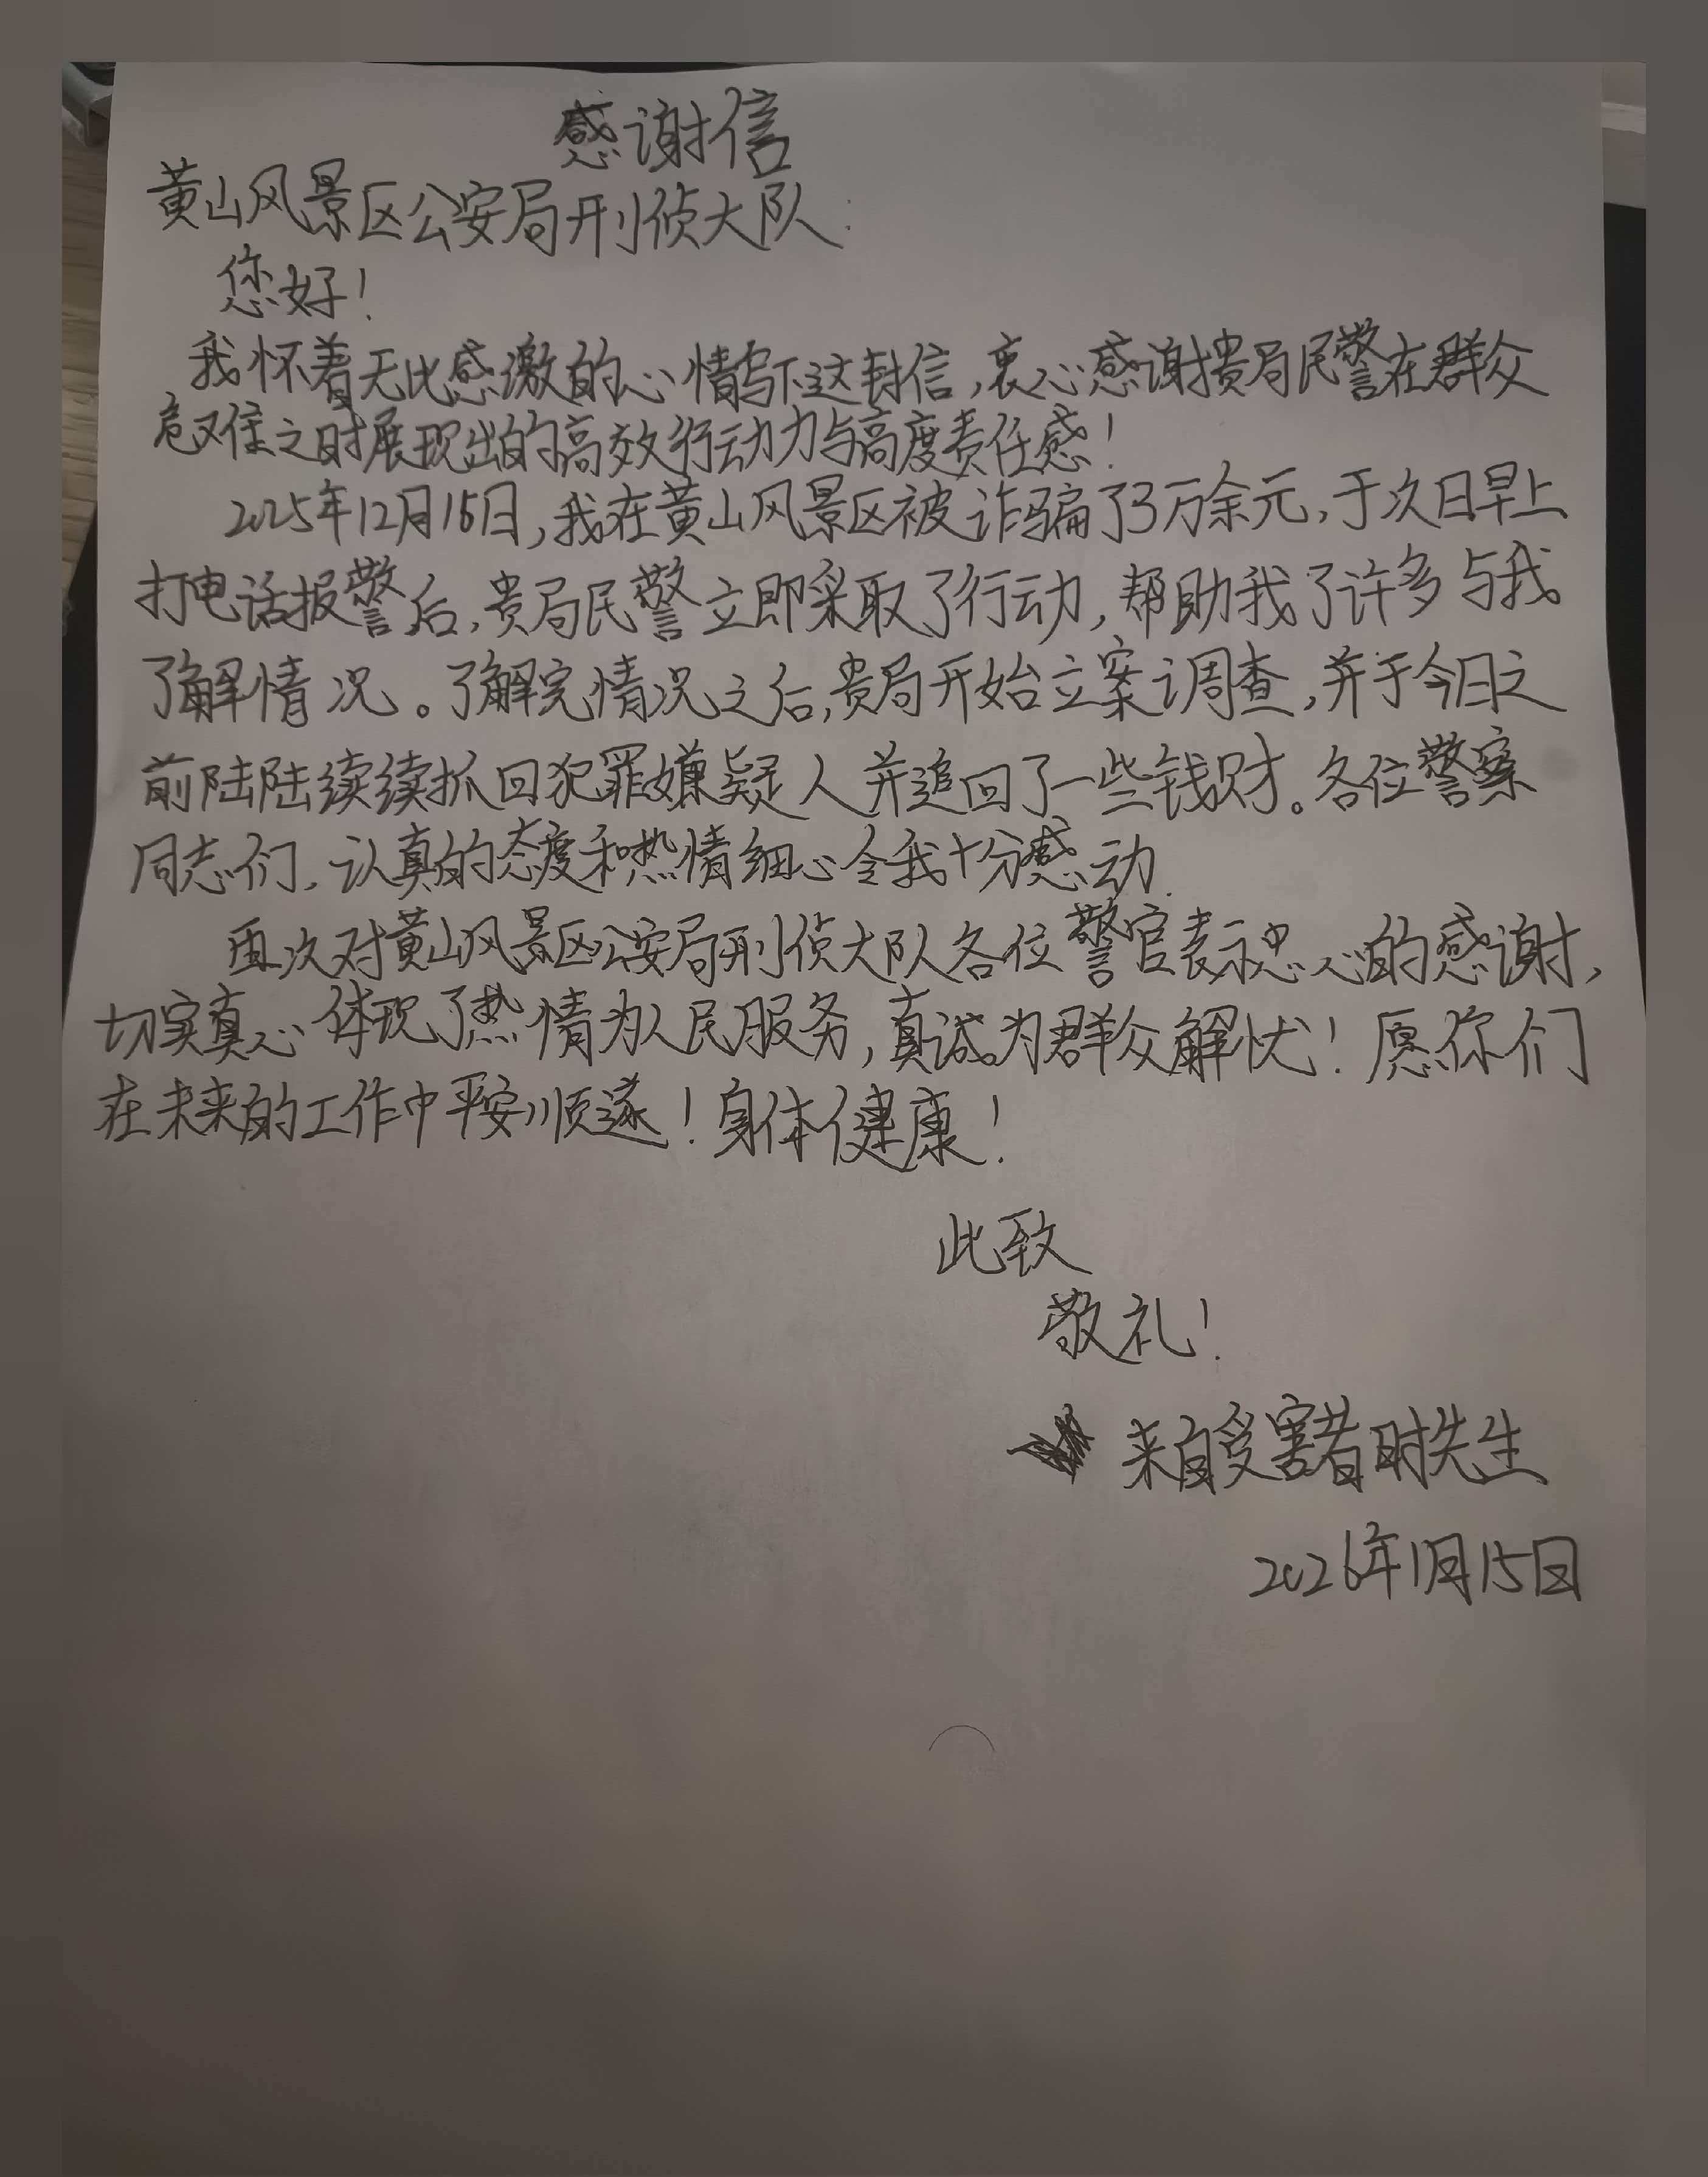 感谢信
黄山风景区公安局刑侦大队:
您好!
我怀着无比感激的心情写下这封信,衷心感谢贵局民警在群众
危难之时展现出的高效行动力与高度责任感!
2025年12月15日,我在黄山风景区被诈骗了3万余元,于次日早上
打电话报警后,贵局民警立即采取了行动,帮助我了许多与我
了解情况。了解完情况之后,贵局开始立案调查,并于今日之
前陆陆续续抓回犯罪嫌疑人并追回了一些钱财。各位警察
同志们、认真的态度和热情细心令我十分感动.
再次对黄山风景区公安局刑侦大队各位警官表示忠心的感谢,
切实真心体现了热情为人民服务,真诚为群众解忧!愿你们
在未来的工作中平安顺遂!身体健康!
此致
敬礼!
来自受害者时先生
2026年1月15日